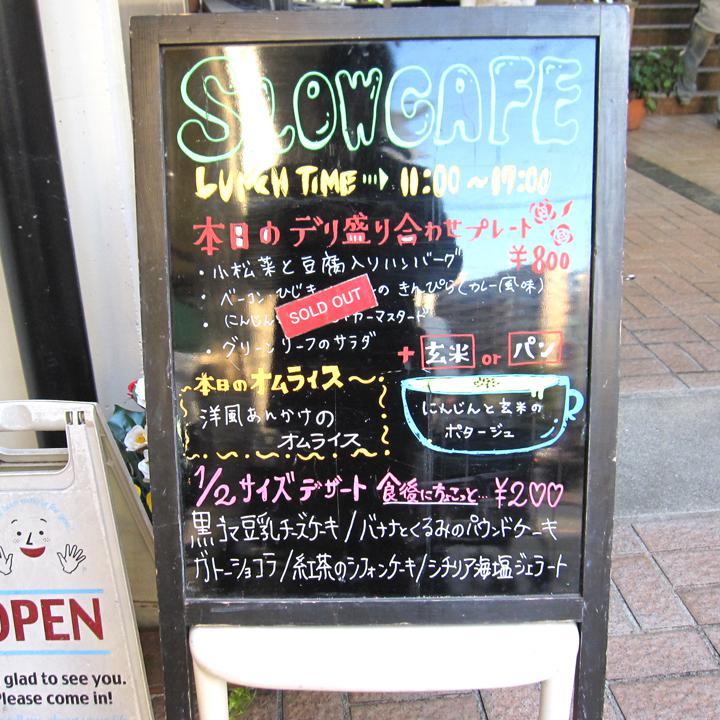 SLOWCAFE
LUNCH TIME ···▶ 11:00 ～ 17:00
本日の デリ盛り合わせプレート
¥800
・小松菜と豆腐入りハンバーグ
・ベーコン ひじき の きんぴら(カレー風味)
SOLD OUT
・にんじん ーマスタード
・グリーンリーフのサラダ
+ 玄米 or パン
本日のオムライス～
洋風あんかけの
オムライス
にんじんと玄米の
ポタージュ
1/2サイズデザート 食後にちょこっと… ¥200
黒ゴマ豆乳チーズケーキ/バナナとくるみのパウンドケーキ
ガトーショコラ/紅茶のシフォンケーキ/シチリア海塩ジェラート
OPEN
glad to see you.
Please come in!